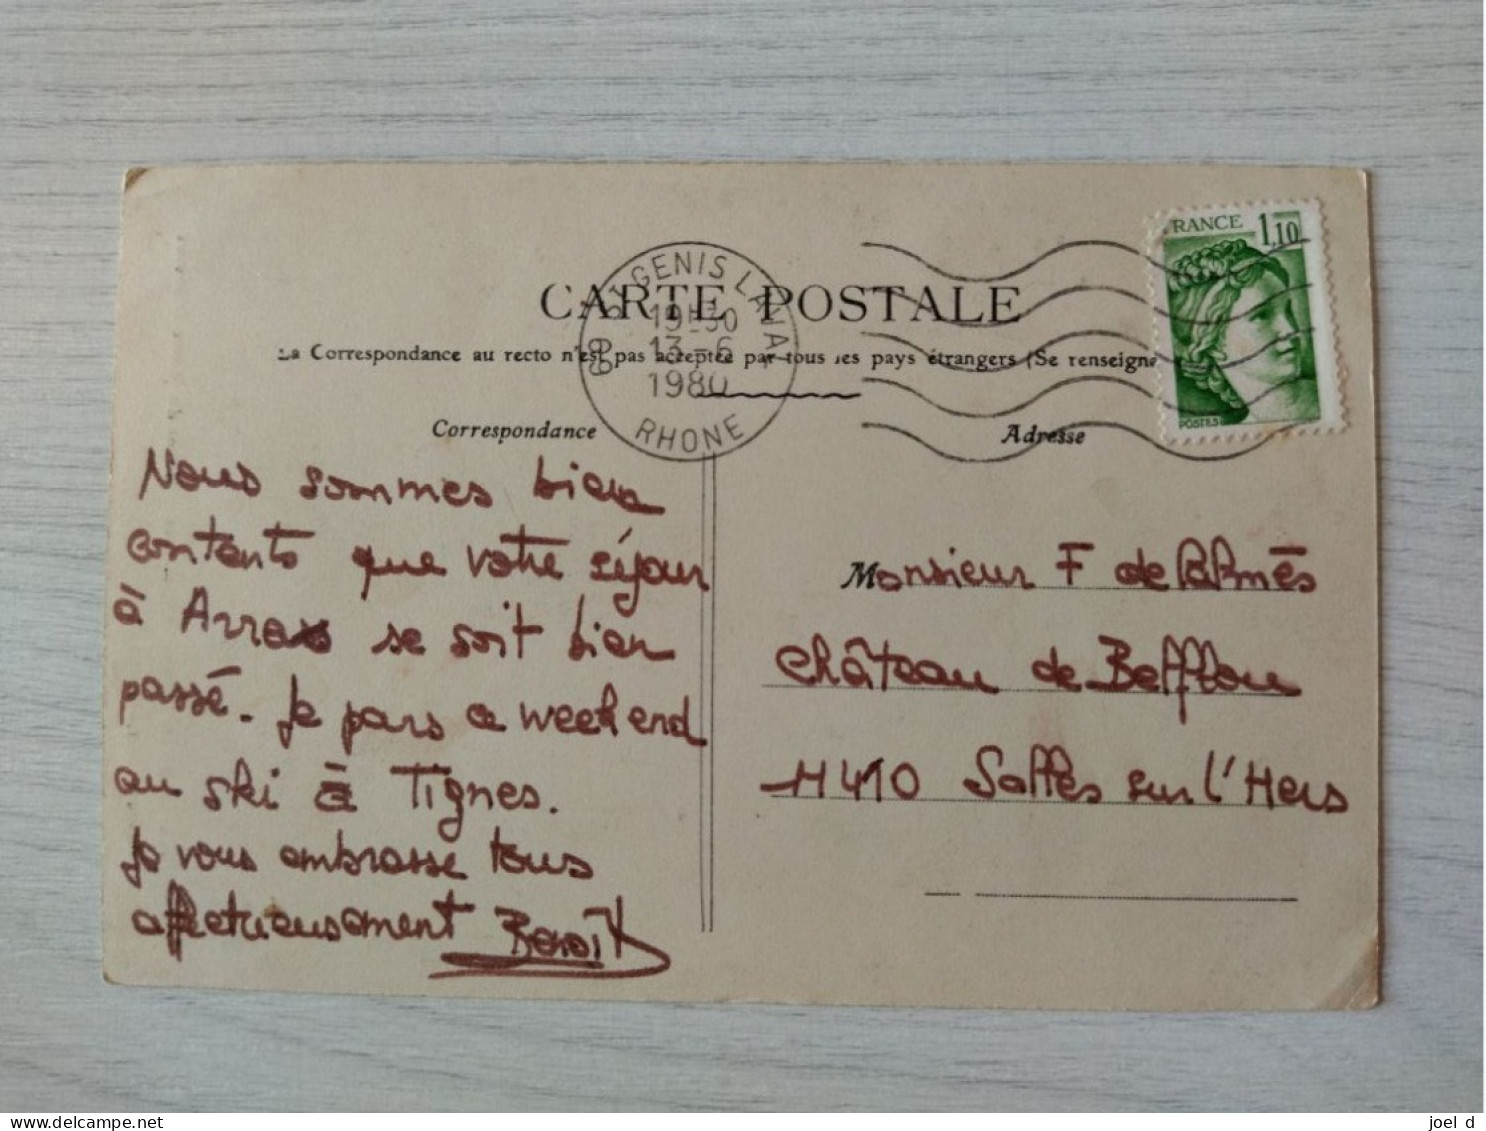 CARTE POSTALE
La Correspondance au recto n'est pas acceptée par tous les pays étrangers (Se renseigne
Correspondance
Adresse
ST GENIS LAVAL
19H30
13-6
1980
69 RHONE
FRANCE 1,10
POSTES
Nous sommes bien
contents que votre séjour
à Arras se soit bien
passé. Je pars ce weekend
au ski à Tignes.
Je vous embrasse tous
affectueusement Benoît
Monsieur F de
Château de Befflou
11410 Salles sur l'Hers
joel d